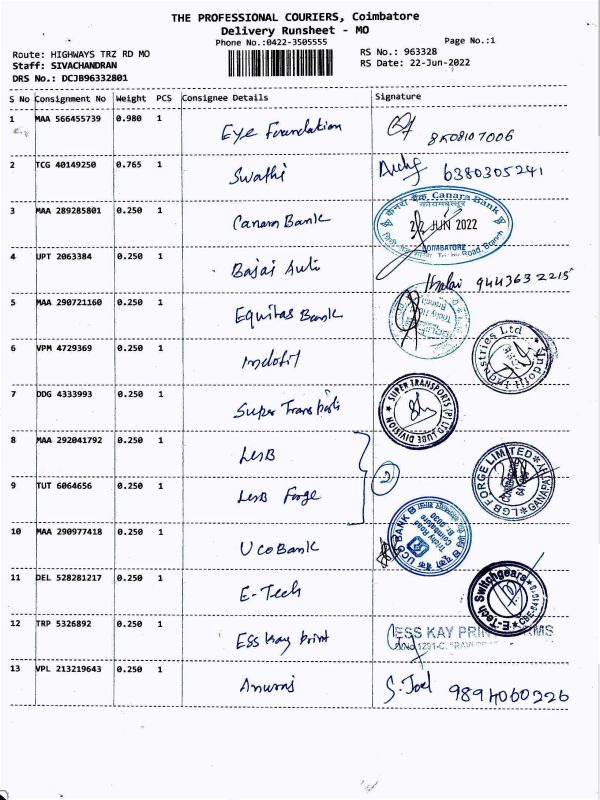 THE PROFESSIONAL COURIERS, Coimbatore
Delivery Runsheet - MO
Phone No.:0422-3505555
Page No.:1
Route: HIGHWAYS TRZ RD MO
RS No.: 963328
Staff: SIVACHANDRAN
RS Date: 22-Jun-2022
DRS No.: DCJB96332801
S No Consignment No Weight PCS Consignee Details Signature
1 MAA 566455739 0.980 1 Eye Foundation
2 TCG 40149250 0.765 1 Swathi 6380305241
3 MAA 289285801 0.250 1 Canara Bank
केनरा बैंक Canara Bank
22 JUN 2022
COIMBATORE
Trichy Road, Branch
4 UPT 2063384 0.250 1 Bajaj Auto 9443632215
5 MAA 290721160 0.250 1 Equitas Bank
6 VPM 4729369 0.250 1 Indofil
Indofil Industries Ltd
7 DDG 4333993 0.250 1 Super Transports
SUPER TRANSPORTS (P) LTD. LUBE DIVISION
8 MAA 292041792 0.250 1 LGB
2
9 TUT 6064656 0.250 1 LGB Forge
LGB FORGE LIMITED
10 MAA 290977418 0.250 1 UCO Bank
UCO BANK
Trichy Road
Coimbatore
11 DEL 528281217 0.250 1 E-Tech
E-Tech Switchgears
12 TRP 5326892 0.250 1 Ess Kay Print
ESS KAY
13 VPL 213219643 0.250 1 S. Joel 9894060226